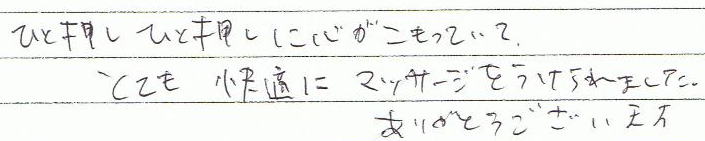 ひと押しひと押しに心がこもっていて、
とても快適にマッサージをうけられました。
ありがとうございます